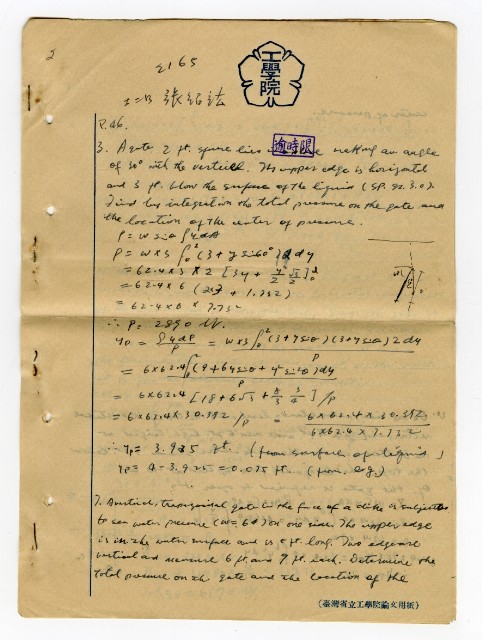 2
2165
工學院
工二乙 張紹法
P.46.
逾時限
3. A gate 2 ft. square lies in a plane making an angle
of 30° with the vertical. Its upper edge is horizontal
and 3 ft. below the surface of the liquid (sp. gr. 3.0).
Find by integration the total pressure on the gate and
the location of the center of pressure.
P = w sinθ ∫ y dA
P = w×3 ∫₀² (3 + y sin60°) 2 dy
= 62.4×3 × 2 [3y +
= 62.4×6 ( + 1.732)
= 62.4×6 × 7.732
∴ P = 2890 lb.
= 6×62.4 ∫₀² (9+6y sinθ + y² sin²θ) dy / P
= 6×62.4 [18+6√3 + 8/3 · 3/4] / P
= 6×62.4×30.392 / P = 6×62.4×30.392 / 6×62.4×7.732
∴ yp = 3.925 ft. (from surface of liquid)
yp = 4 - 3.925 = 0.075 ft. (from c.g.)
7. A vertical, trapezoidal gate in the face of a dike is subjected
to sea water pressure (w = 64) on one side. The upper edge
is in the water surface and is 5 ft. long. Two edges are
vertical and measure 6 ft. and 9 ft. each. Determine the
total pressure on the gate and the location of the
(臺灣省立工學院論文用紙)